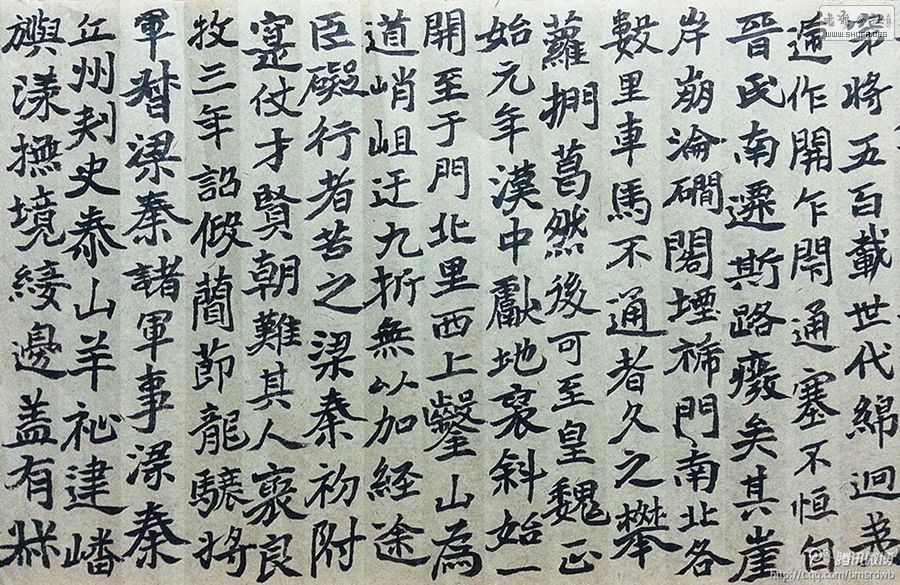 穿將五百載世代綿迴
遞作開乍閇通塞不恒自
晉氏南遷斯路癈矣其崖
岸崩淪磵閣堙褫門南北各
數里車馬不通者久之攀
蘿捫葛然後可至皇魏正
始元年漢中獻地裒斜始一
開至于門北里西上鑿山為
道峭岨迂九折無以加経途
臣礙行者苦之梁秦初附
寔仗才賢朝難其人裒良
牧三年詔假蕳節龍驤將
軍督梁秦諸軍事梁秦
州刾史泰山羊祉建嶓
旟漾撫境綏邊蓋有
WWW.SHUFA.ORG
腾讯微博
http://t.qq.com/bmsrdwb